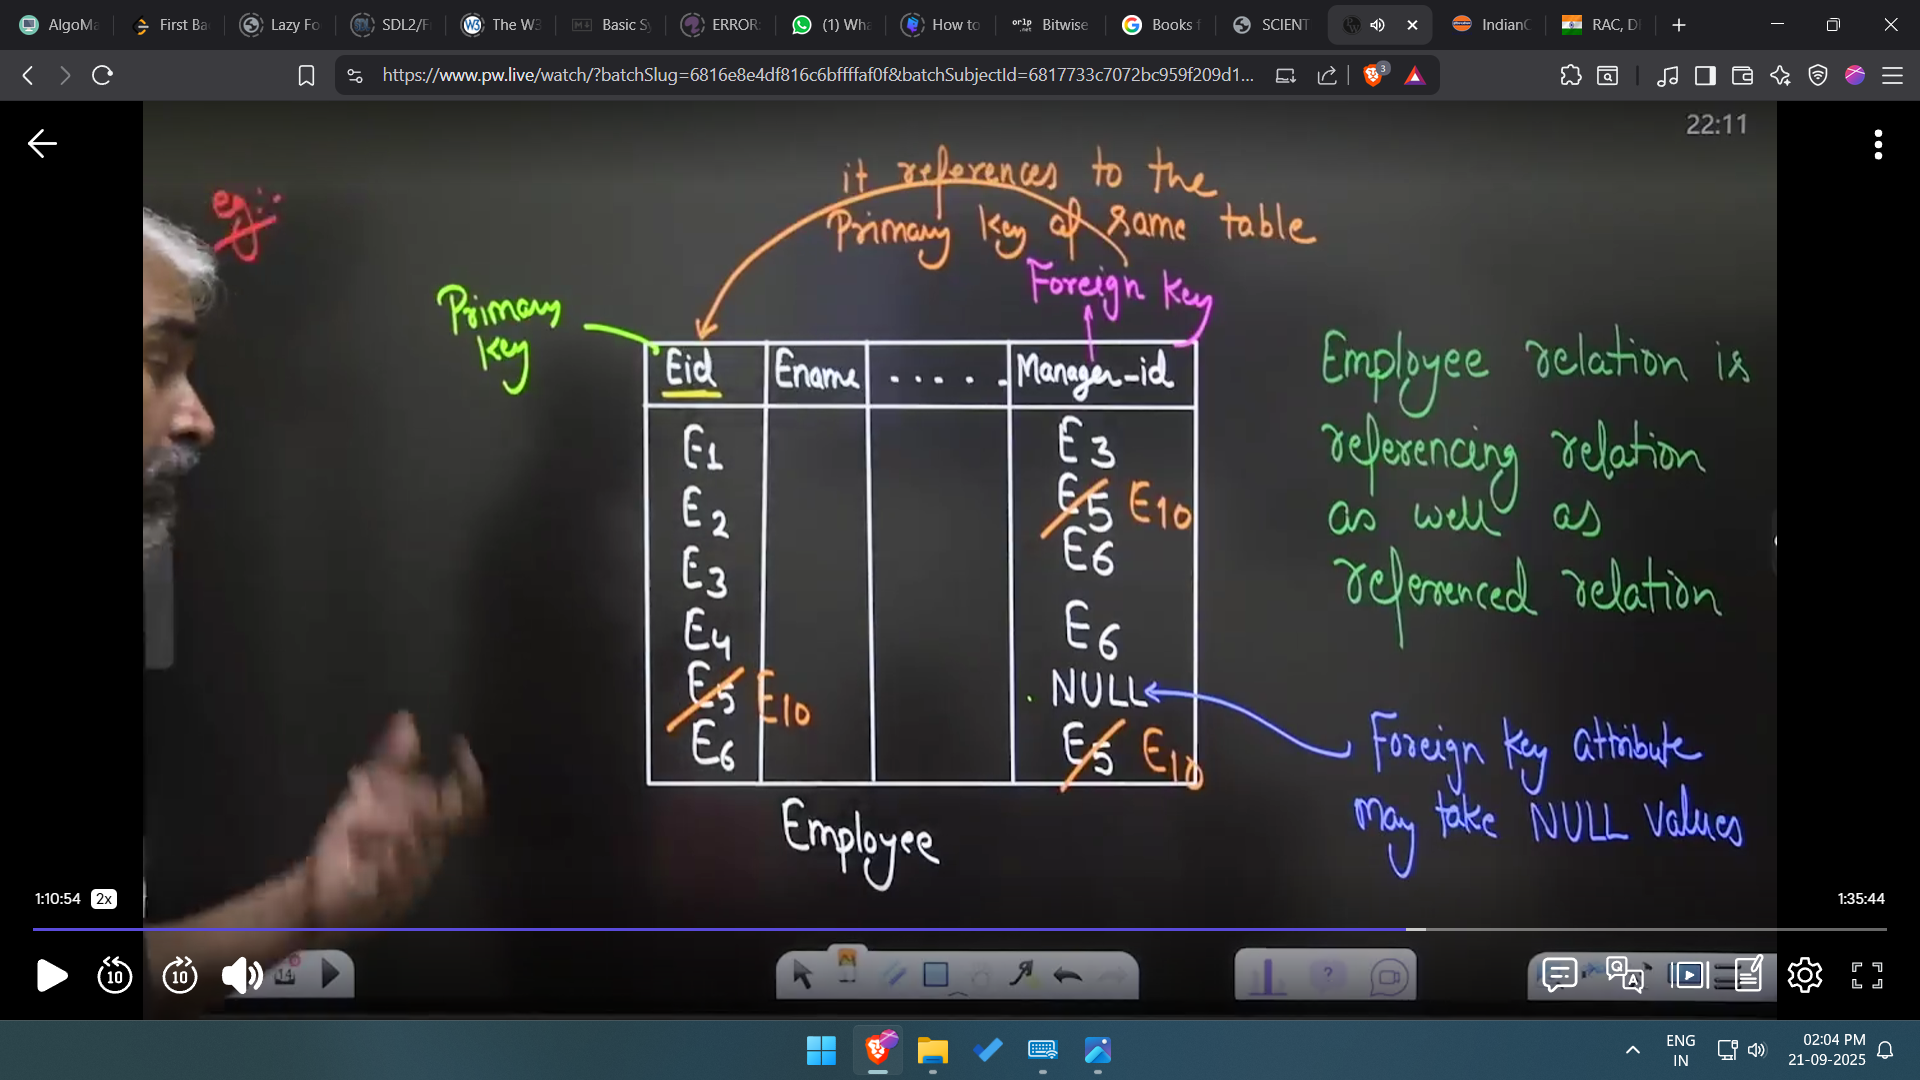 AlgoMa
First Ba
Lazy Fo
SDL2/F
The W3
Basic Sy
ERROR:
(1) Wha
How to
Bitwise
Books f
SCIENT
IndianC
RAC, D
https://www.pw.live/watch/?batchSlug=6816e8e4df816c6bffffaf0f&batchSubjectId=6817733c7072bc959f209d1...
3
22:11
eg:-
it references to the
Primary key of same table
Foreign key
Primary
key
Eid Ename ...... Manager-id
E1 E3
E2 E5 E10
E3 E6
E4 E6
E5 E10 NULL
E6 E5 E10
Employee
Employee relation is
referencing relation
as well as
referenced relation
Foreign key attribute
may take NULL values
1:10:54 2x
1:35:44
10
10
14
ENG
IN
02:04 PM
21-09-2025